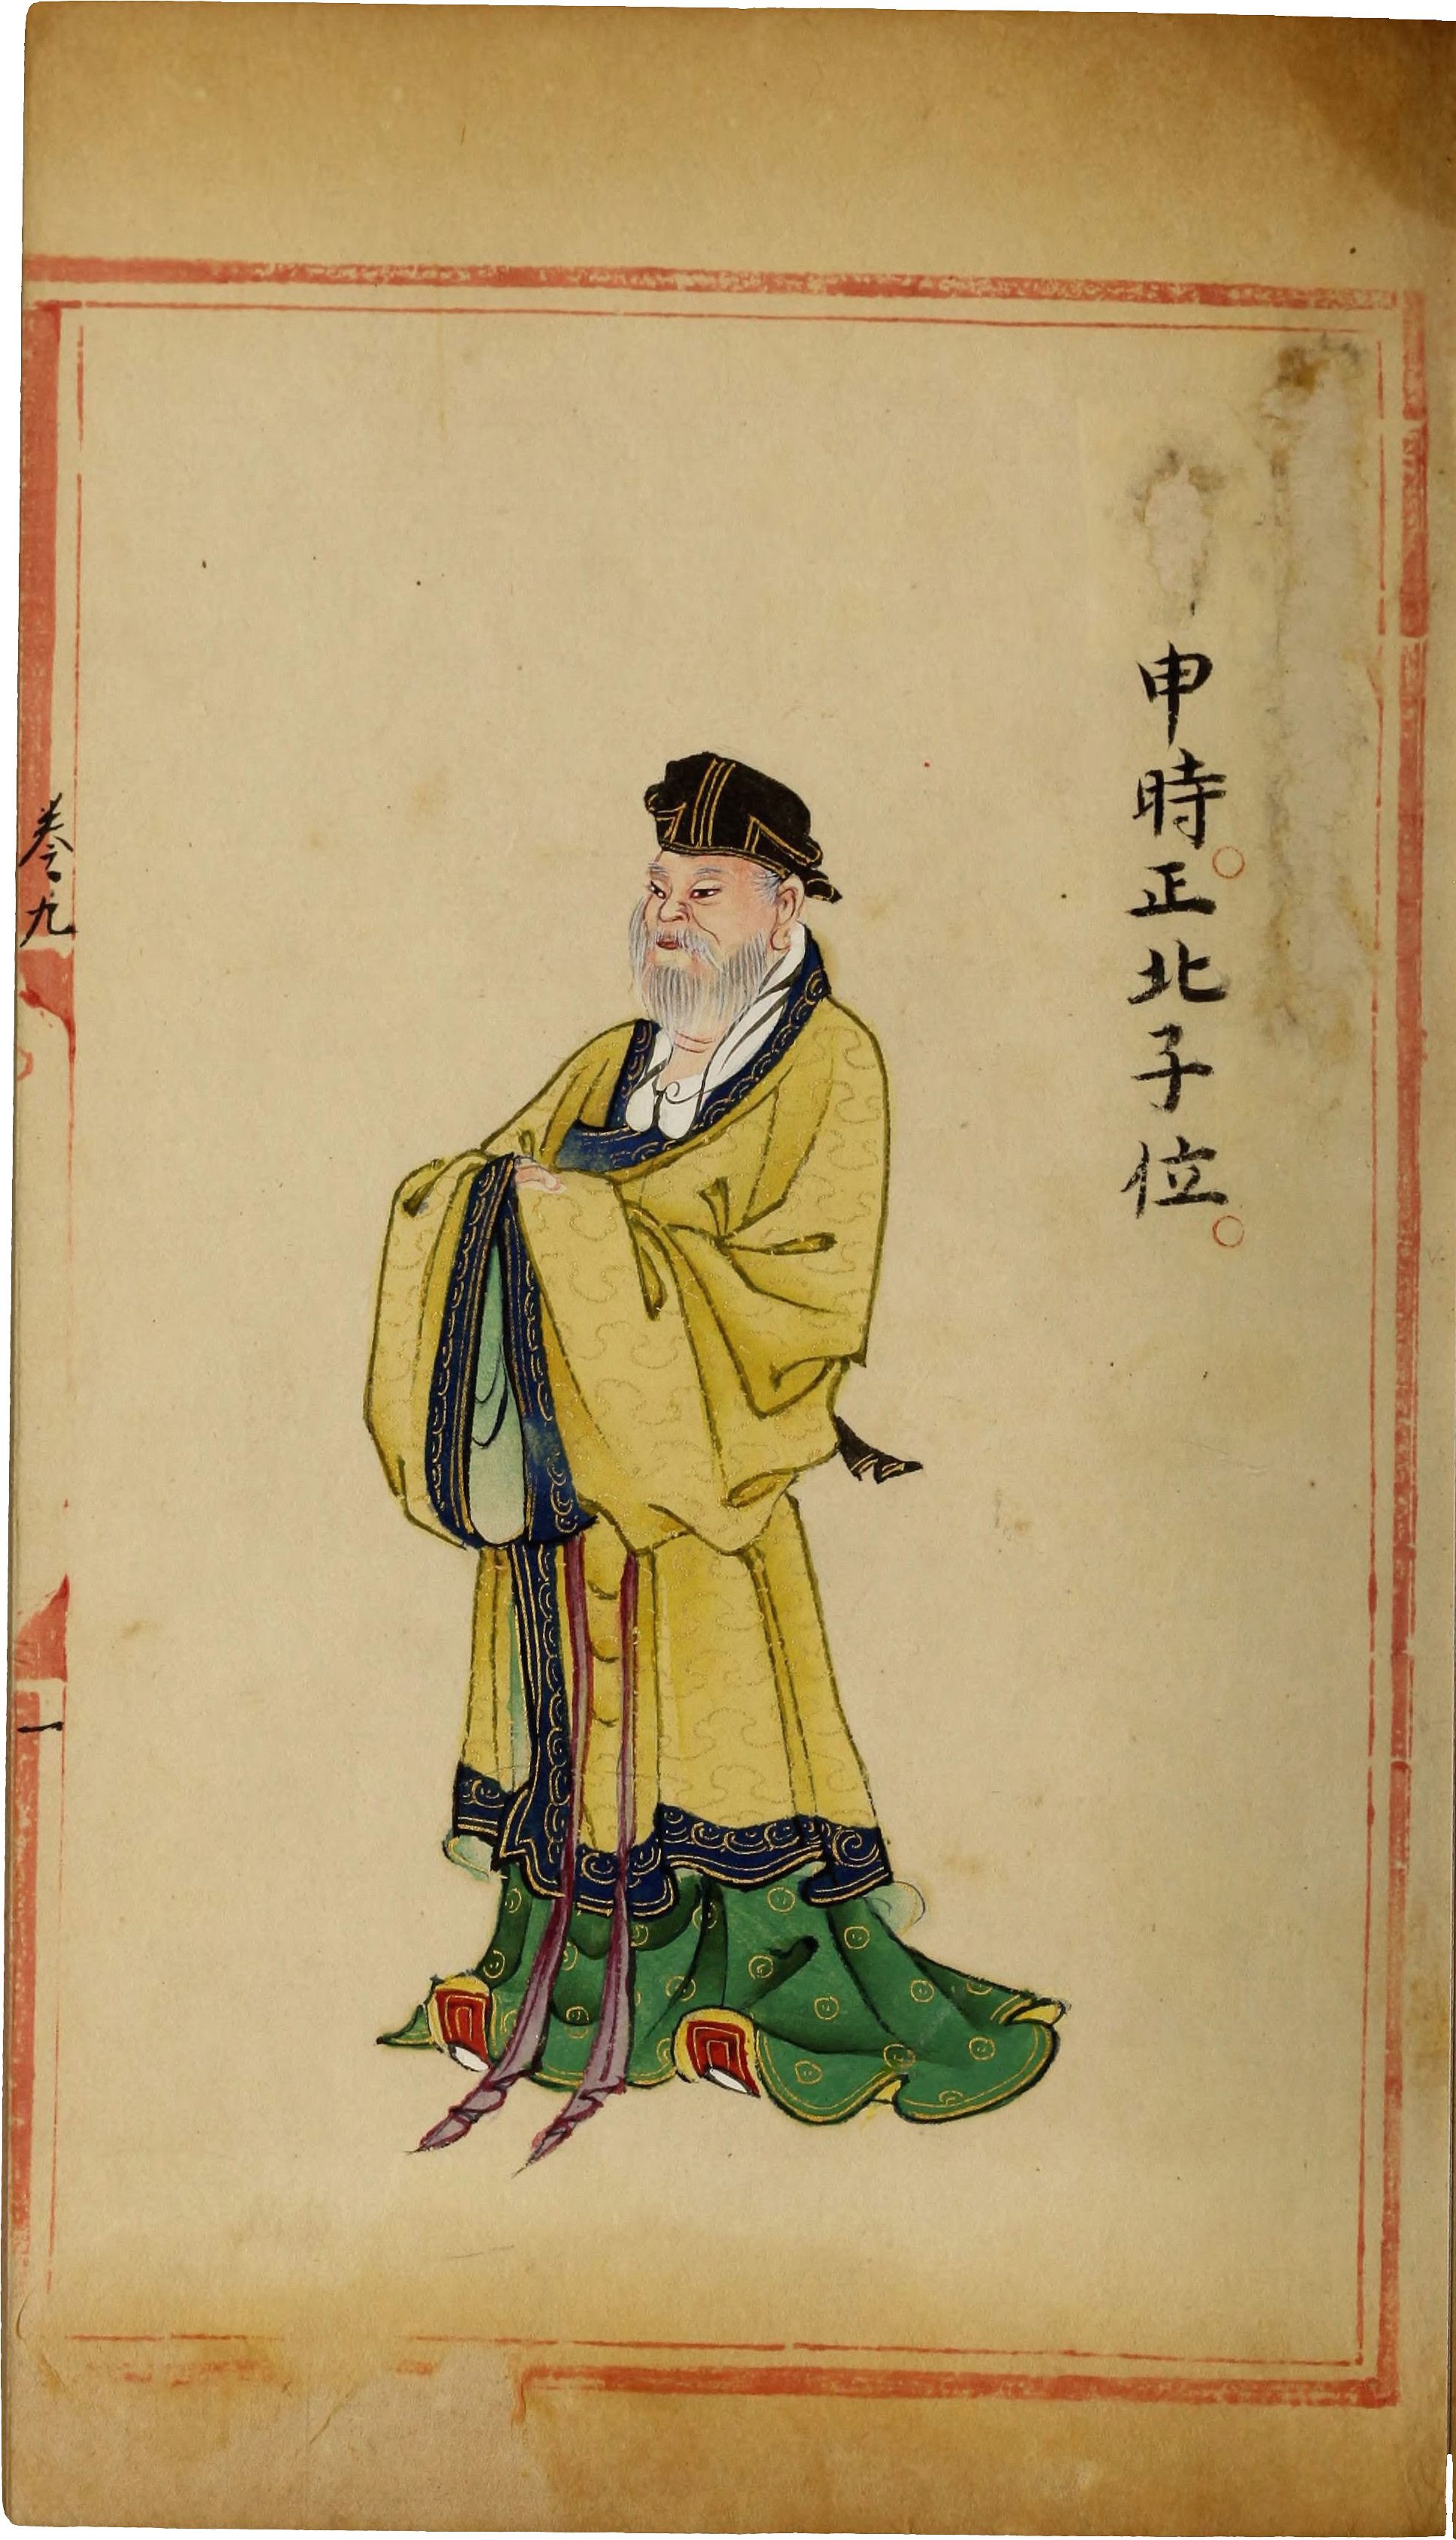 申時○正北子位○
卷之九
一